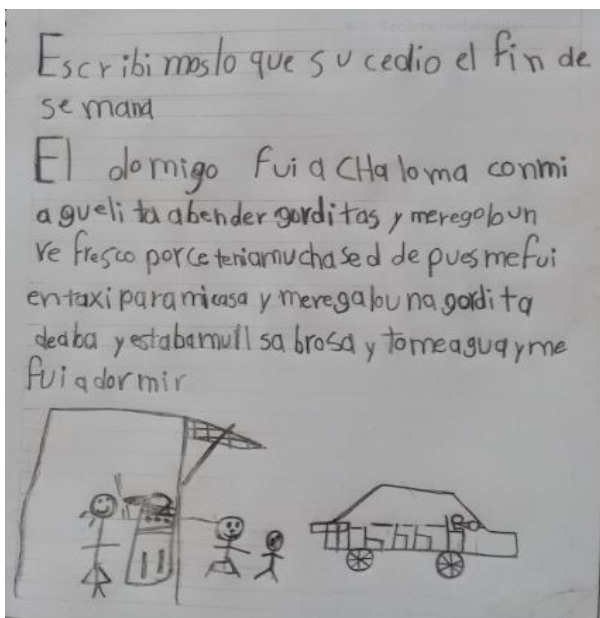 Escribi moslo que su cedio el fin de
se mana
El domigo fui a CHaloma conmi
a gueli ta abender gorditas y meregolo un
re fresco porce teniamucha sed de pues me fui
entaxi para micasa y meregalou na gordita
deaba y estabamull sa brosa y tomeagua y me
fui a dor mir